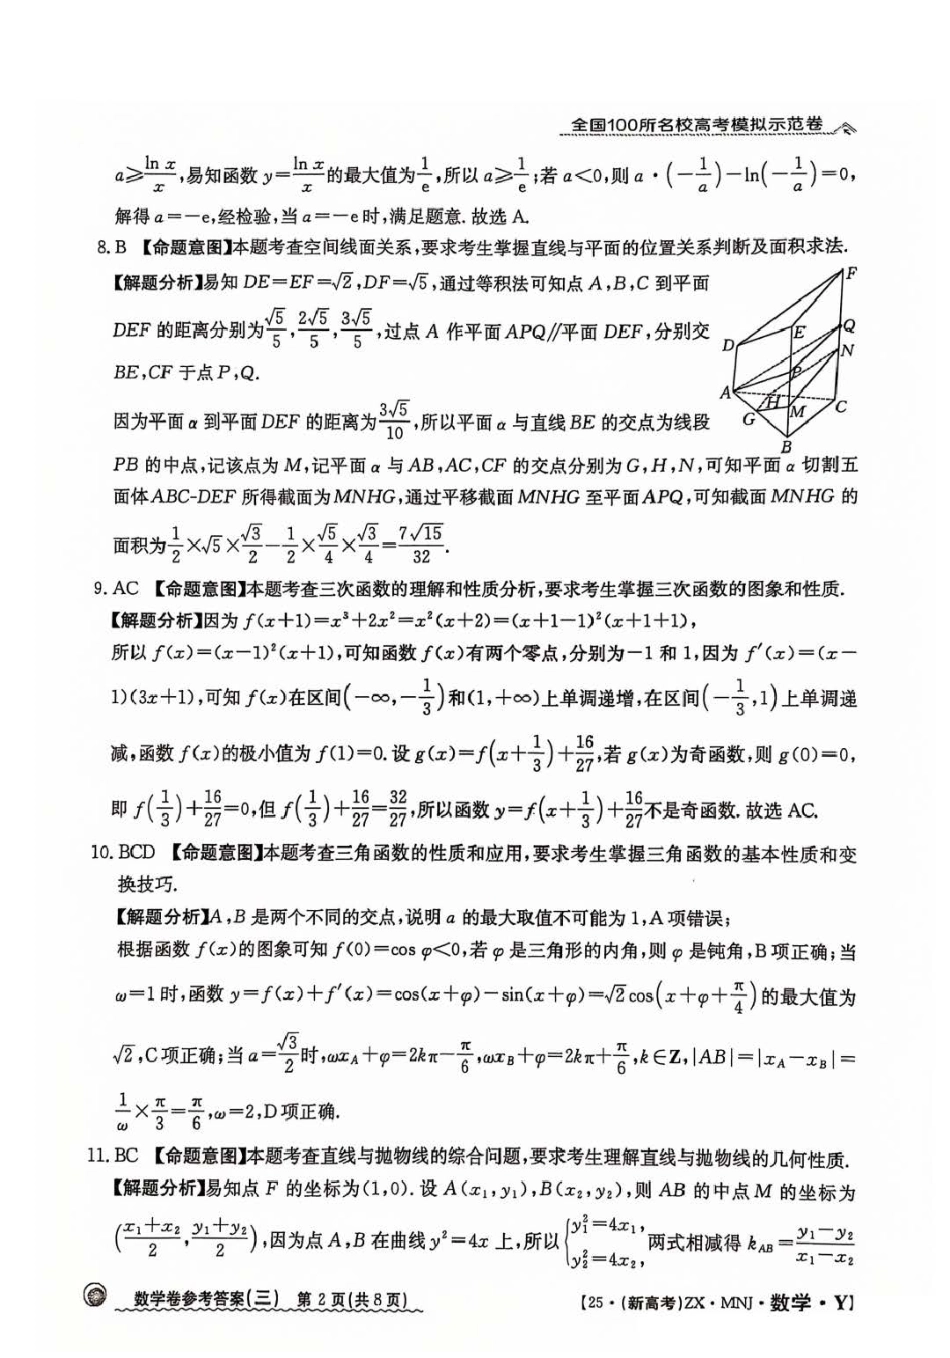 全国100所名校高考模拟示范卷
a≥\frac{\ln x}{x},易知函数 y=\frac{\ln x}{x}的最大值为\frac{1}{e},所以 a≥\frac{1}{e};若 a<0,则 a·(-\frac{1}{a})-ln(-\frac{1}{a})=0,
解得 a=-e,经检验,当 a=-e时,满足题意.故选 A.
8. B 【命题意图】本题考查空间线面关系,要求考生掌握直线与平面的位置关系判断及面积求法.
【解题分析】易知 DE=EF=√2,DF=√5,通过等积法可知点 A,B,C 到平面
DEF 的距离分别为\frac{√5}{5},\frac{2√5}{5},\frac{3√5}{5},过点 A 作平面 APQ//平面 DEF,分别交
BE,CF 于点 P,Q.
因为平面 α 到平面 DEF 的距离为\frac{3√5}{10},所以平面 α 与直线 BE 的交点为线段
F
E
Q
D
N
P
A
H
M
C
G
B
PB 的中点,记该点为 M,记平面 α 与 AB,AC,CF 的交点分别为 G,H,N,可知平面 α 切割五
面体ABC-DEF 所得截面为MNHG,通过平移截面 MNHG 至平面APQ,可知截面 MNHG 的
面积为\frac{1}{2}×√5×\frac{√3}{2}-\frac{1}{2}×\frac{√5}{4}×\frac{√3}{4}=\frac{7√15}{32}.
9. AC 【命题意图】本题考查三次函数的理解和性质分析,要求考生掌握三次函数的图象和性质.
【解题分析】因为 f(x+1)=x³+2x²=x²(x+2)=(x+1-1)²(x+1+1),
所以 f(x)=(x-1)²(x+1),可知函数 f(x)有两个零点,分别为-1 和 1,因为 f′(x)=(x-
1)(3x+1),可知 f(x)在区间(-∞,-\frac{1}{3})和(1,+∞)上单调递增,在区间(-\frac{1}{3},1)上单调递
减,函数 f(x)的极小值为 f(1)=0.设 g(x)=f(x+\frac{1}{3})+\frac{16}{27},若 g(x)为奇函数,则 g(0)=0,
即 f(\frac{1}{3})+\frac{16}{27}=0,但 f(\frac{1}{3})+\frac{16}{27}=\frac{32}{27},所以函数 y=f(x+\frac{1}{3})+\frac{16}{27}不是奇函数.故选 AC.
10. BCD 【命题意图】本题考查三角函数的性质和应用,要求考生掌握三角函数的基本性质和变
换技巧.
【解题分析】A,B 是两个不同的交点,说明 a 的最大取值不可能为 1,A 项错误;
根据函数 f(x)的图象可知 f(0)=cos φ<0,若 φ 是三角形的内角,则 φ 是钝角,B 项正确;当
ω=1 时,函数 y=f(x)+f′(x)=cos(x+φ)-sin(x+φ)=√2 cos(x+φ+\frac{π}{4})的最大值为
√2,C 项正确;当 a=\frac{√3}{2}时,ωx_A+φ=2kπ-\frac{π}{6},ωx_B+φ=2kπ+\frac{π}{6},k∈Z,|AB|=|x_A-x_B|=
\frac{1}{ω}×\frac{π}{3}=\frac{π}{6},ω=2,D项正确.
11. BC 【命题意图】本题考查直线与抛物线的综合问题,要求考生理解直线与抛物线的几何性质.
【解题分析】易知点 F 的坐标为(1,0).设 A(x₁,y₁),B(x₂,y₂),则 AB 的中点 M 的坐标为
(\frac{x₁+x₂}{2},\frac{y₁+y₂}{2}),因为点 A,B 在曲线 y²=4x 上,所以{y₁²=4x₁, y₂²=4x₂, 两式相减得 k_{AB}=\frac{y₁-y₂}{x₁-x₂}
数学卷参考答案(三) 第 2 页(共 8 页)
【25·(新高考)ZX·MNJ·数学·Y】